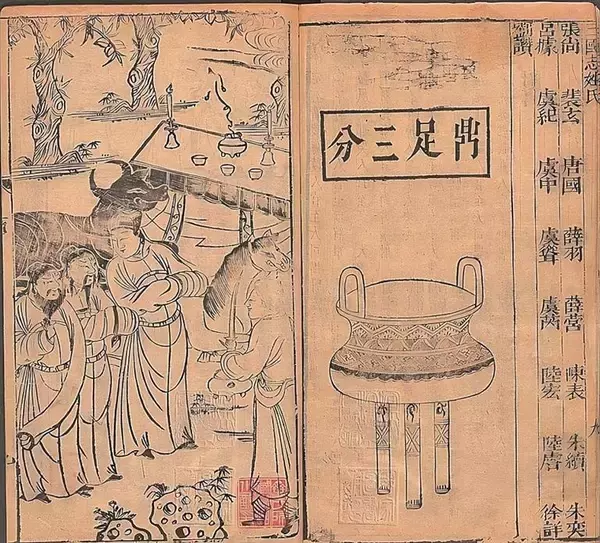 三國志姓氏
張尚 裴玄 唐國 薛羽 薛營 陳表 朱續 朱奕
呂據 虞紀 虞 虞聳 虞 陸宏 陸 徐詳
讚
鼎足三分